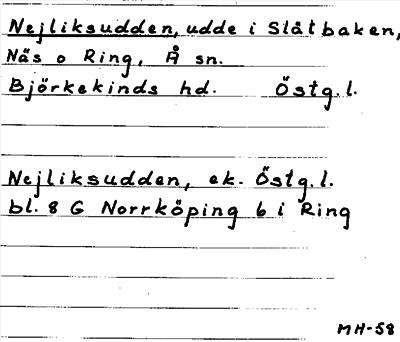 Nejliksudden, udde i Slätbaken,
Näs o Ring, Å sn.
Björkekinds hd. Östg.l.
Nejliksudden, ek. Östg.l.
bl. 8 G Norrköping 6 i Ring
MH-58